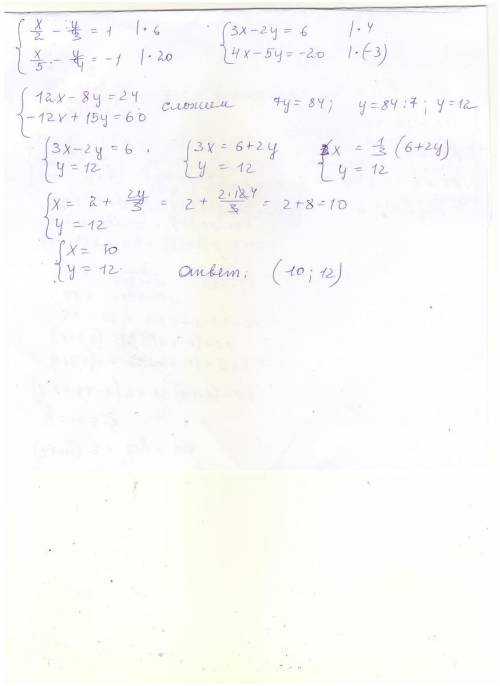 { x/2 - y/3 = 1 | · 6      { 3x - 2y = 6 | · 4
{ x/5 - y/4 = -1 | · 20      { 4x - 5y = -20 | · (-3)
{ 12x - 8y = 24
{ -12x + 15y = 60 сложим 7y = 84; y = 84 : 7; y = 12
{ 3x - 2y = 6      { 3x = 6 + 2y      { x = 1/3 (6 + 2y)
{ y = 12      { y = 12      { y = 12
{ x = 2 + 2y/3 = 2 + 2·12 4/3 = 2 + 8 = 10
{ y = 12
{ x = 10
{ y = 12      ответ: (10; 12)